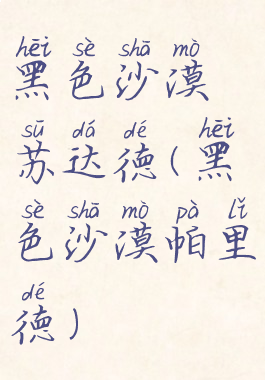 hēi sè shā mò
黑色沙漠
sū dá dé hēi
苏达德(黑
sè shā mò pà lǐ
色沙漠帕里
dé
德)